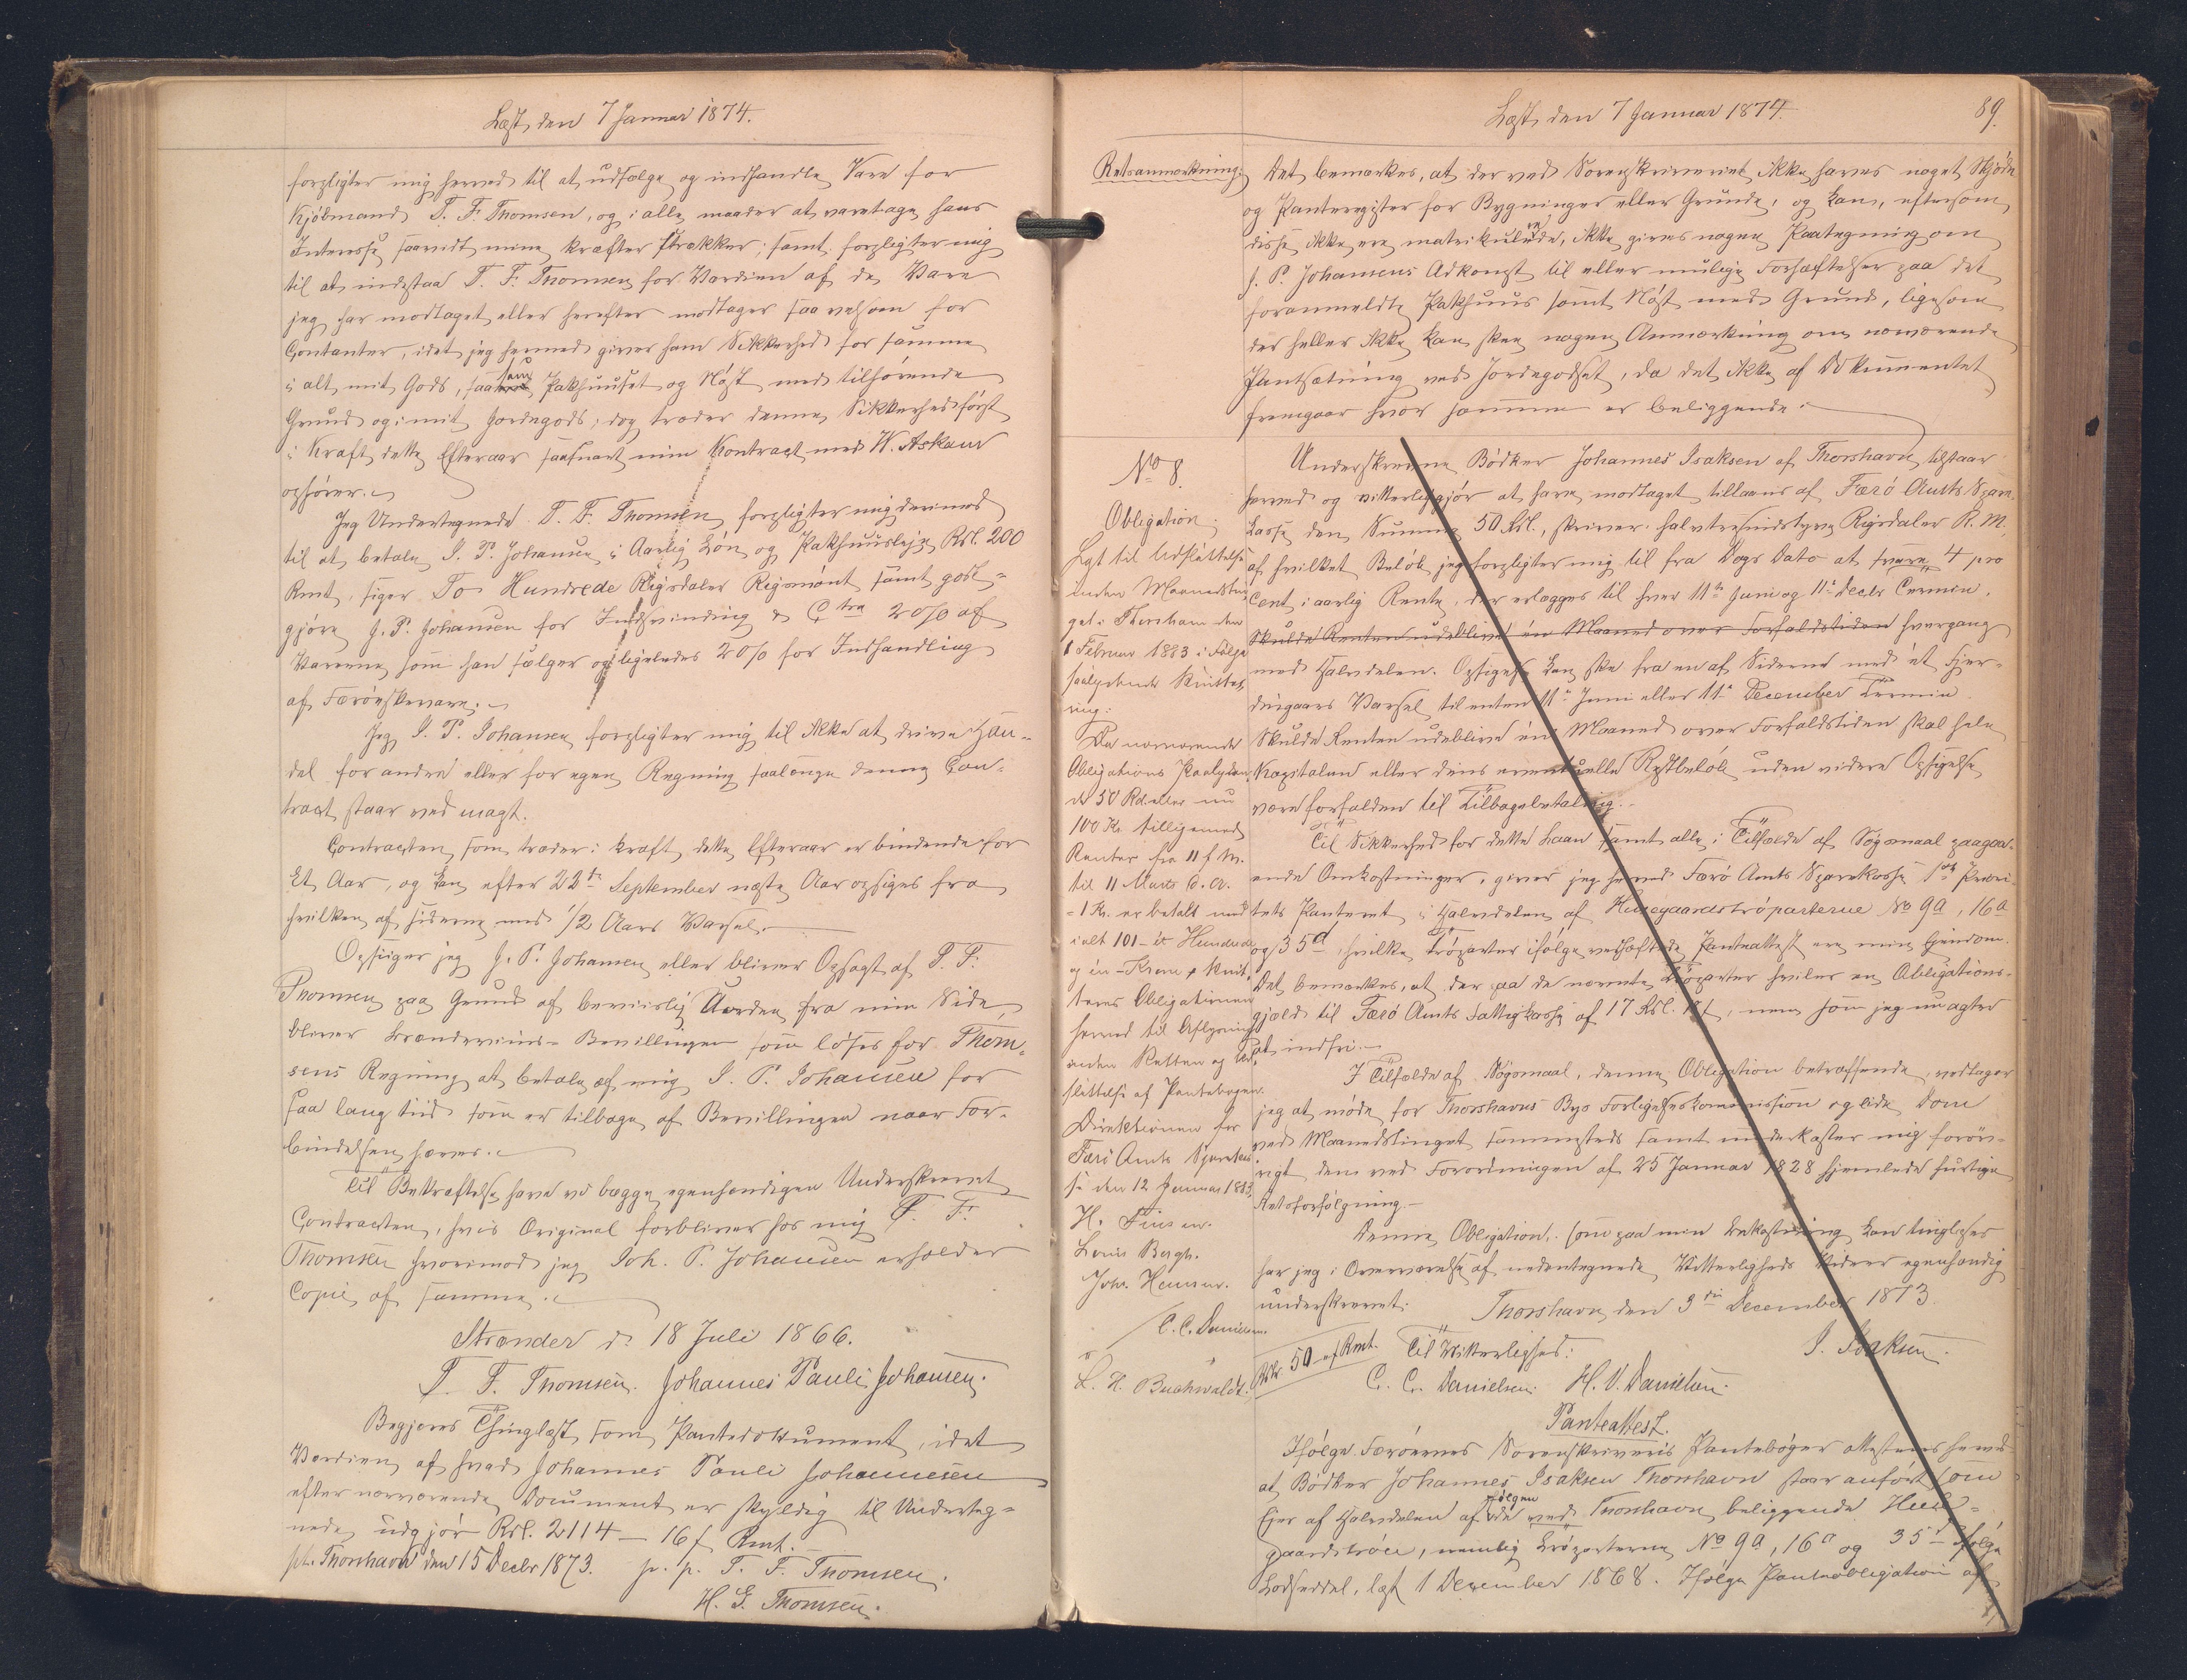 Læst den 7 Januar 1874.
forpligter mig herved til at udsælge og indhandle Vare for
Kjøbmand T. F. Thomsen, og i alle maader at varetage hans
Interesse saavidt mine kræfter strækker; samt forpligter mig
til at indestaa T. F. Thomsen for Værdien af de Vare
jeg har modtaget eller herefter modtager saa velsom for
Contanter, idet jeg hermed giver ham Sikkerhed for samme
i alt mit Gods, saasom Pakhuuset og Nøst med tilhørende
Grund og i mit Jordegods; dog træder denne Sikkerhed først
i Kraft dette Efteraar saasnart min Kontract med W. Askam
ophører.
Jeg Undertegnede T. F. Thomsen forpligter mig derimod
til at betale J. P. Johansen i Aarlig Løn og Pakhuusleje Rdl. 200
Rmt. siger To Hundrede Rigsdaler Rigsmønt samt godt-
gjøre J. P. Johansen for Indsvinding & Ctra 2% af
Varerne som han sælger og ligeledes 2% for Indhandling
af Færøeskevare.
Jeg J. P. Johansen forpligter mig til ikke at drive Han-
del for andre eller for egen Regning saalænge denne Con-
tract staar ved magt.
Contracten som træder i kraft dette Efteraar er bindende for
Et Aar, og kan efter 22de September næste Aar opsiges fra
hvilken af siderne med 1/2 Aars Varsel.
Opsiger jeg J. P. Johansen eller bliver Opsagt af T. F.
Thomsen paa Grund af beviislig Uorden fra min Side,
bliver Brændeviins-Bevillingen som løses for Thom-
sens Regning at betale af mig J. P. Johansen for
saa lang tiid som er tilbage af Bevillingen naar For-
bindelsen hæves.
Til Bekræftelse have vi begge egenhændigen Underskrevet
Contracten, hvis Original forbliver hos mig T. F.
Thomsen hvorimod jeg Joh. P. Johansen erholder
Copie af samme.
Strænder d. 18 Juli 1866.
T. F. Thomsen. Johannes Pauli Johansen.
Begjeres Thinglæst som Pantedokument, idet
Værdien af hvad Johannes Pauli Johannesen
efter nærværende Document er skyldig til Underteg-
nede udgjør Rdl. 2114 - 16 s Rmt.
pt. Thorshavn den 15 Decbr 1873. p. p. T. F. Thomsen.
H. G. Thomsen.
Læst den 7 Januar 1874. 89.
Retsanmærkning: Det bemærkes, at der ved Sorenskriveriet ikke haves noget Skjøde
og Panteregister for Bygninger eller Grunde, og kan, eftersom
disse ikke ere matrikulerede, ikke gives nogen Paategning om
J. P. Johansens Adkomst til eller mulige Forhæftelser paa det
foranmeldte Pakhuus samt Nøst med Grund, ligesom
der heller ikke kan skee nogen Anmærkning om nærværende
Pantsætning ved Jordegodset, da det ikke af Dokumentet
fremgaar hvor samme er beliggende.
No 8.
Obligation.
Lyst til Udslettelse
inden Maanedstin-
get i Thorshavn den
6 Februar 1883 i Følge
saalydende Kvitte-
ring:
Da nærværende
Obligations Paalyden-
de 50 Rd. eller nu
100 Kr. tilligemed
Renter fra 11 f. M.
til 11 Marts d. A.
= 1 Kr. er betalt med
ialt 101 - et Hundrede
og en - Krone kvit-
teres Obligationen
herved til Aflysning
inden Retten og Ud-
slettelse af Pantebogen.
Direktionen for
Færø Amts Sparekas-
se den 12 Januar 1883.
H. Finsen.
Louis Bergh.
Johs. Hensen.
C. C. Danielsen.
L. H. Buchwaldt.
Underskrevne Bødker Johannes Isaksen af Thorshavn tilstaar
herved og vitterliggjør at have modtaget tillaans af Færø Amts Spare-
kasse den Summa 50 Rdl., skriver halvtredsindstyve Rigsdaler R. M.
af hvilket Beløb jeg forpligter mig til fra Dags Dato at svare 4 pro
Cent i aarlig Rente, der erlægges til hver 11te Juni og 11te Decbr Termin,
Skulde Renten udeblive én Maaned over Forfaldstiden hvergang
med Halvdelen. Opsigelse kan ske fra en af Siderne med et Fjer-
dingaars Varsel til enten 11te Juni eller 11te December Termin.
Skulde Renten udeblive én Maaned over Forfaldstiden skal hele
Kapitalen eller dens eventuelle Restbeløb uden videre Opsigelse
være forfalden til Tilbagebetaling.
Til Sikkerhed for dette Laan samt alle i Tilfælde af Søgsmaal paagaa-
ende Omkostninger, giver jeg herved Færø Amts Sparekasse 1ste Priori-
tets Panteret i Halvdelen af Husegaardstrøparterne No 9a, 16a
og 35d, hvilke Trøparter ifølge vedhæftede Panteattest ere min Eiendom.
Det bemærkes, at der paa de nævnte Trøparter hviler en Obligations-
gjæld til Færø Amts Fattigkasse af 17 Rdl. s, men som jeg nu agter
at indfri.
I Tilfælde af Søgsmaal, denne Obligation betræffende, vedtager
jeg at møde for Thorshavns Byes Forligelseskommission og lide Dom
ved Maanedstinget sammesteds samt underkaster mig forøv-
rigt den ved Forordningen af 25 Januar 1828 hjemlede hurtige
Retsforfølgning.
Denne Obligation, som paa min Bekostning kan tinglæses
har jeg i Overværelse af nedentegnede Vitterligheds Vidner egenhændig
underskrevet. Thorshavn, den 3die December 1873.
Rdlr. 50 - s Rmt. Til Vitterlighed: J. Isaksen.
C. C. Danielsen. H. V. Danielsen.
Panteattest.
Ifølge Færøernes Sorenskriveris Pantebøger attesteres herved
at Bødker Johannes Isaksen Thorshavn staar anført som
Eier af Halvdelen af følgende ved Thorshavn beliggende Huse-
gaardstrøer, nemlig Trøparterne No 9a, 16a og 35d ifølge
Lodseddel, læst 1 December 1868. Ifølge Panteobligation af